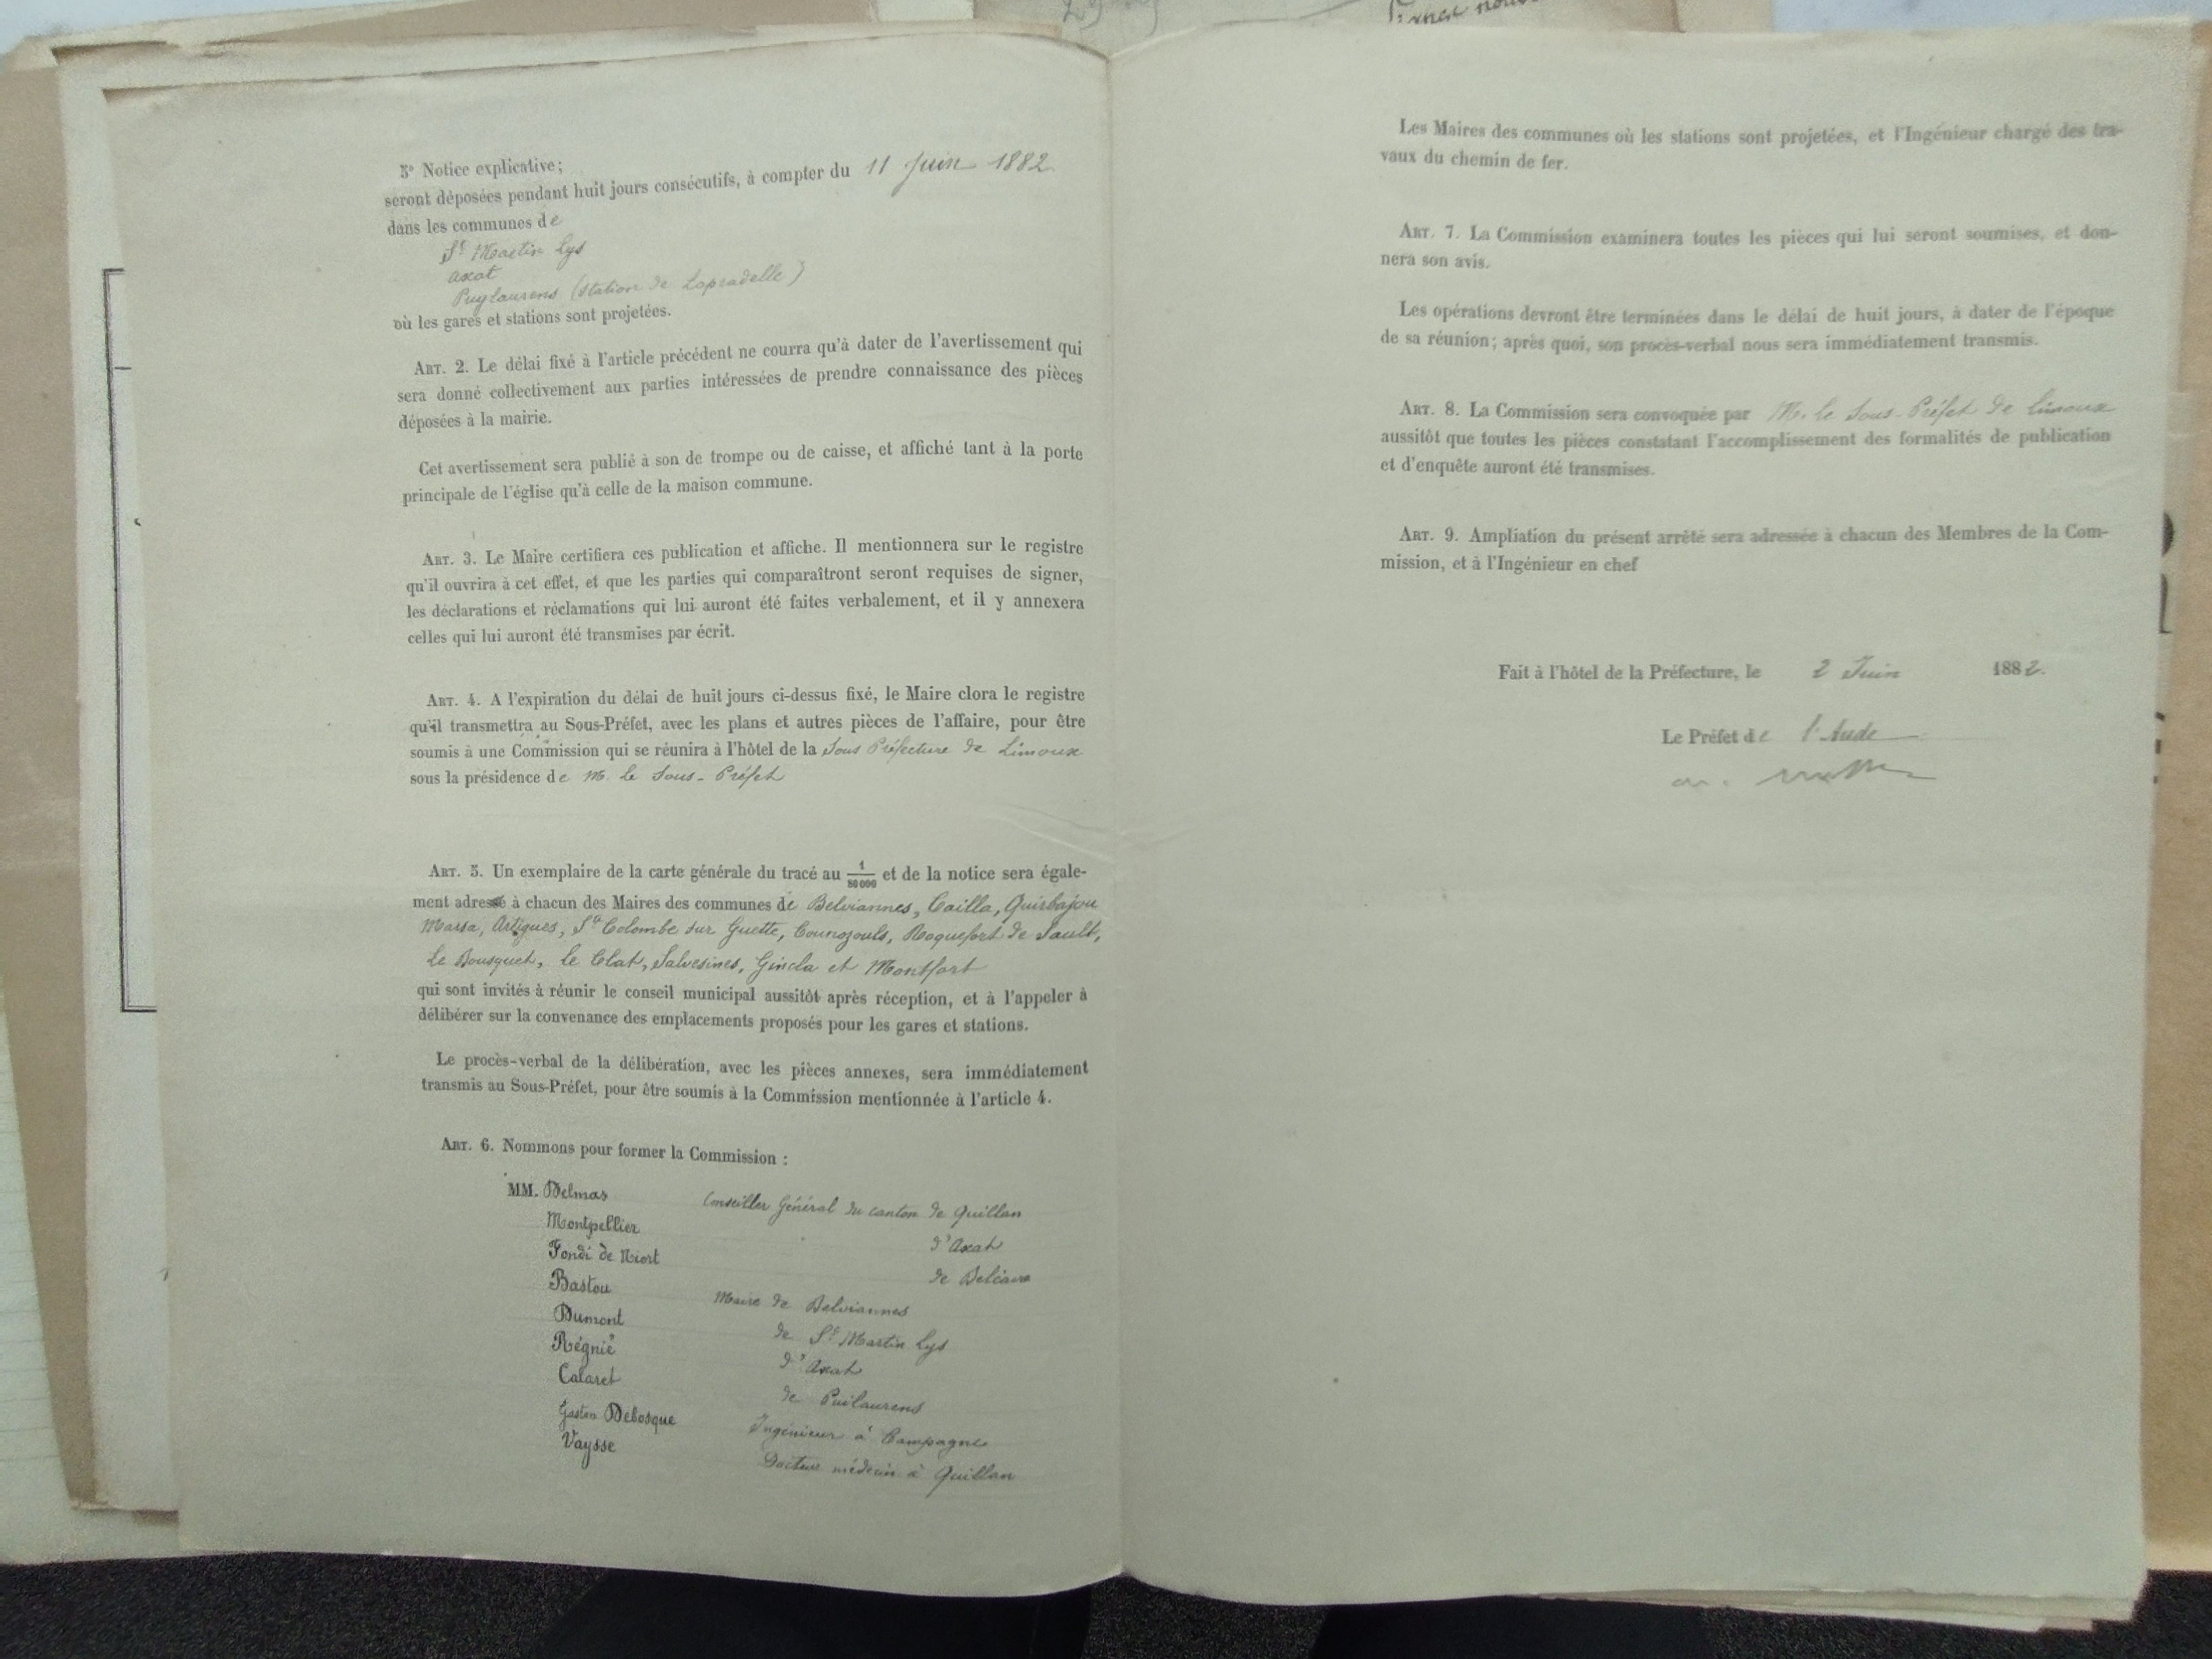 5° Notice explicative;
seront déposées pendant huit jours consécutifs, à compter du 11 Juin 1882
dans les communes de
St Martin Lys
Axat
Puylaurens (Station de Lapradelle)
où les gares et stations sont projetées.
ART. 2. Le délai fixé à l'article précédent ne courra qu'à dater de l'avertissement qui
sera donné collectivement aux parties intéressées de prendre connaissance des pièces
déposées à la mairie.
Cet avertissement sera publié à son de trompe ou de caisse, et affiché tant à la porte
principale de l'église qu'à celle de la maison commune.
ART. 3. Le Maire certifiera ces publication et affiche. Il mentionnera sur le registre
qu'il ouvrira à cet effet, et que les parties qui comparaîtront seront requises de signer,
les déclarations et réclamations qui lui auront été faites verbalement, et il y annexera
celles qui lui auront été transmises par écrit.
ART. 4. A l'expiration du délai de huit jours ci-dessus fixé, le Maire clora le registre
qu'il transmettra au Sous-Préfet, avec les plans et autres pièces de l'affaire, pour être
soumis à une Commission qui se réunira à l'hôtel de la Sous Préfecture de Limoux
sous la présidence de M. le Sous-Préfet
ART. 5. Un exemplaire de la carte générale du tracé au 1/80000 et de la notice sera égale-
ment adressé à chacun des Maires des communes de Belviannes, Cailla, Quirbajou
Marsa, Artigues, Ste Colombe sur Guette, Counozouls, Roquefort de Sault,
le Bousquet, le Clat, Salvesines, Gincla et Montfort
qui sont invités à réunir le conseil municipal aussitôt après réception, et à l'appeler à
délibérer sur la convenance des emplacements proposés pour les gares et stations.
Le procès-verbal de la délibération, avec les pièces annexes, sera immédiatement
transmis au Sous-Préfet, pour être soumis à la Commission mentionnée à l'article 4.
ART. 6. Nommons pour former la Commission :
MM. Delmas Conseiller Général du canton de Quillan
Montpellier d'Axat
Fondi de Niort de Belcaire
Bastou Maire de Belviannes
Dumont de St Martin Lys
Régnié d'Axat
Calaret de Puilaurens
Gaston Debosque Ingénieur à Campagne
Vaysse Docteur médecin à Quillan
Les Maires des communes où les stations sont projetées, et l'Ingénieur chargé des tra-
vaux du chemin de fer.
ART. 7. La Commission examinera toutes les pièces qui lui seront soumises, et don-
nera son avis.
Les opérations devront être terminées dans le délai de huit jours, à dater de l'époque
de sa réunion; après quoi, son procès-verbal nous sera immédiatement transmis.
ART. 8. La Commission sera convoquée par M. le Sous-Préfet de Limoux
aussitôt que toutes les pièces constatant l'accomplissement des formalités de publication
et d'enquête auront été transmises.
ART. 9. Ampliation du présent arrêté sera adressée à chacun des Membres de la Com-
mission, et à l'Ingénieur en chef
Fait à l'hôtel de la Préfecture, le 2 Juin 1882.
Le Préfet de l'Aude